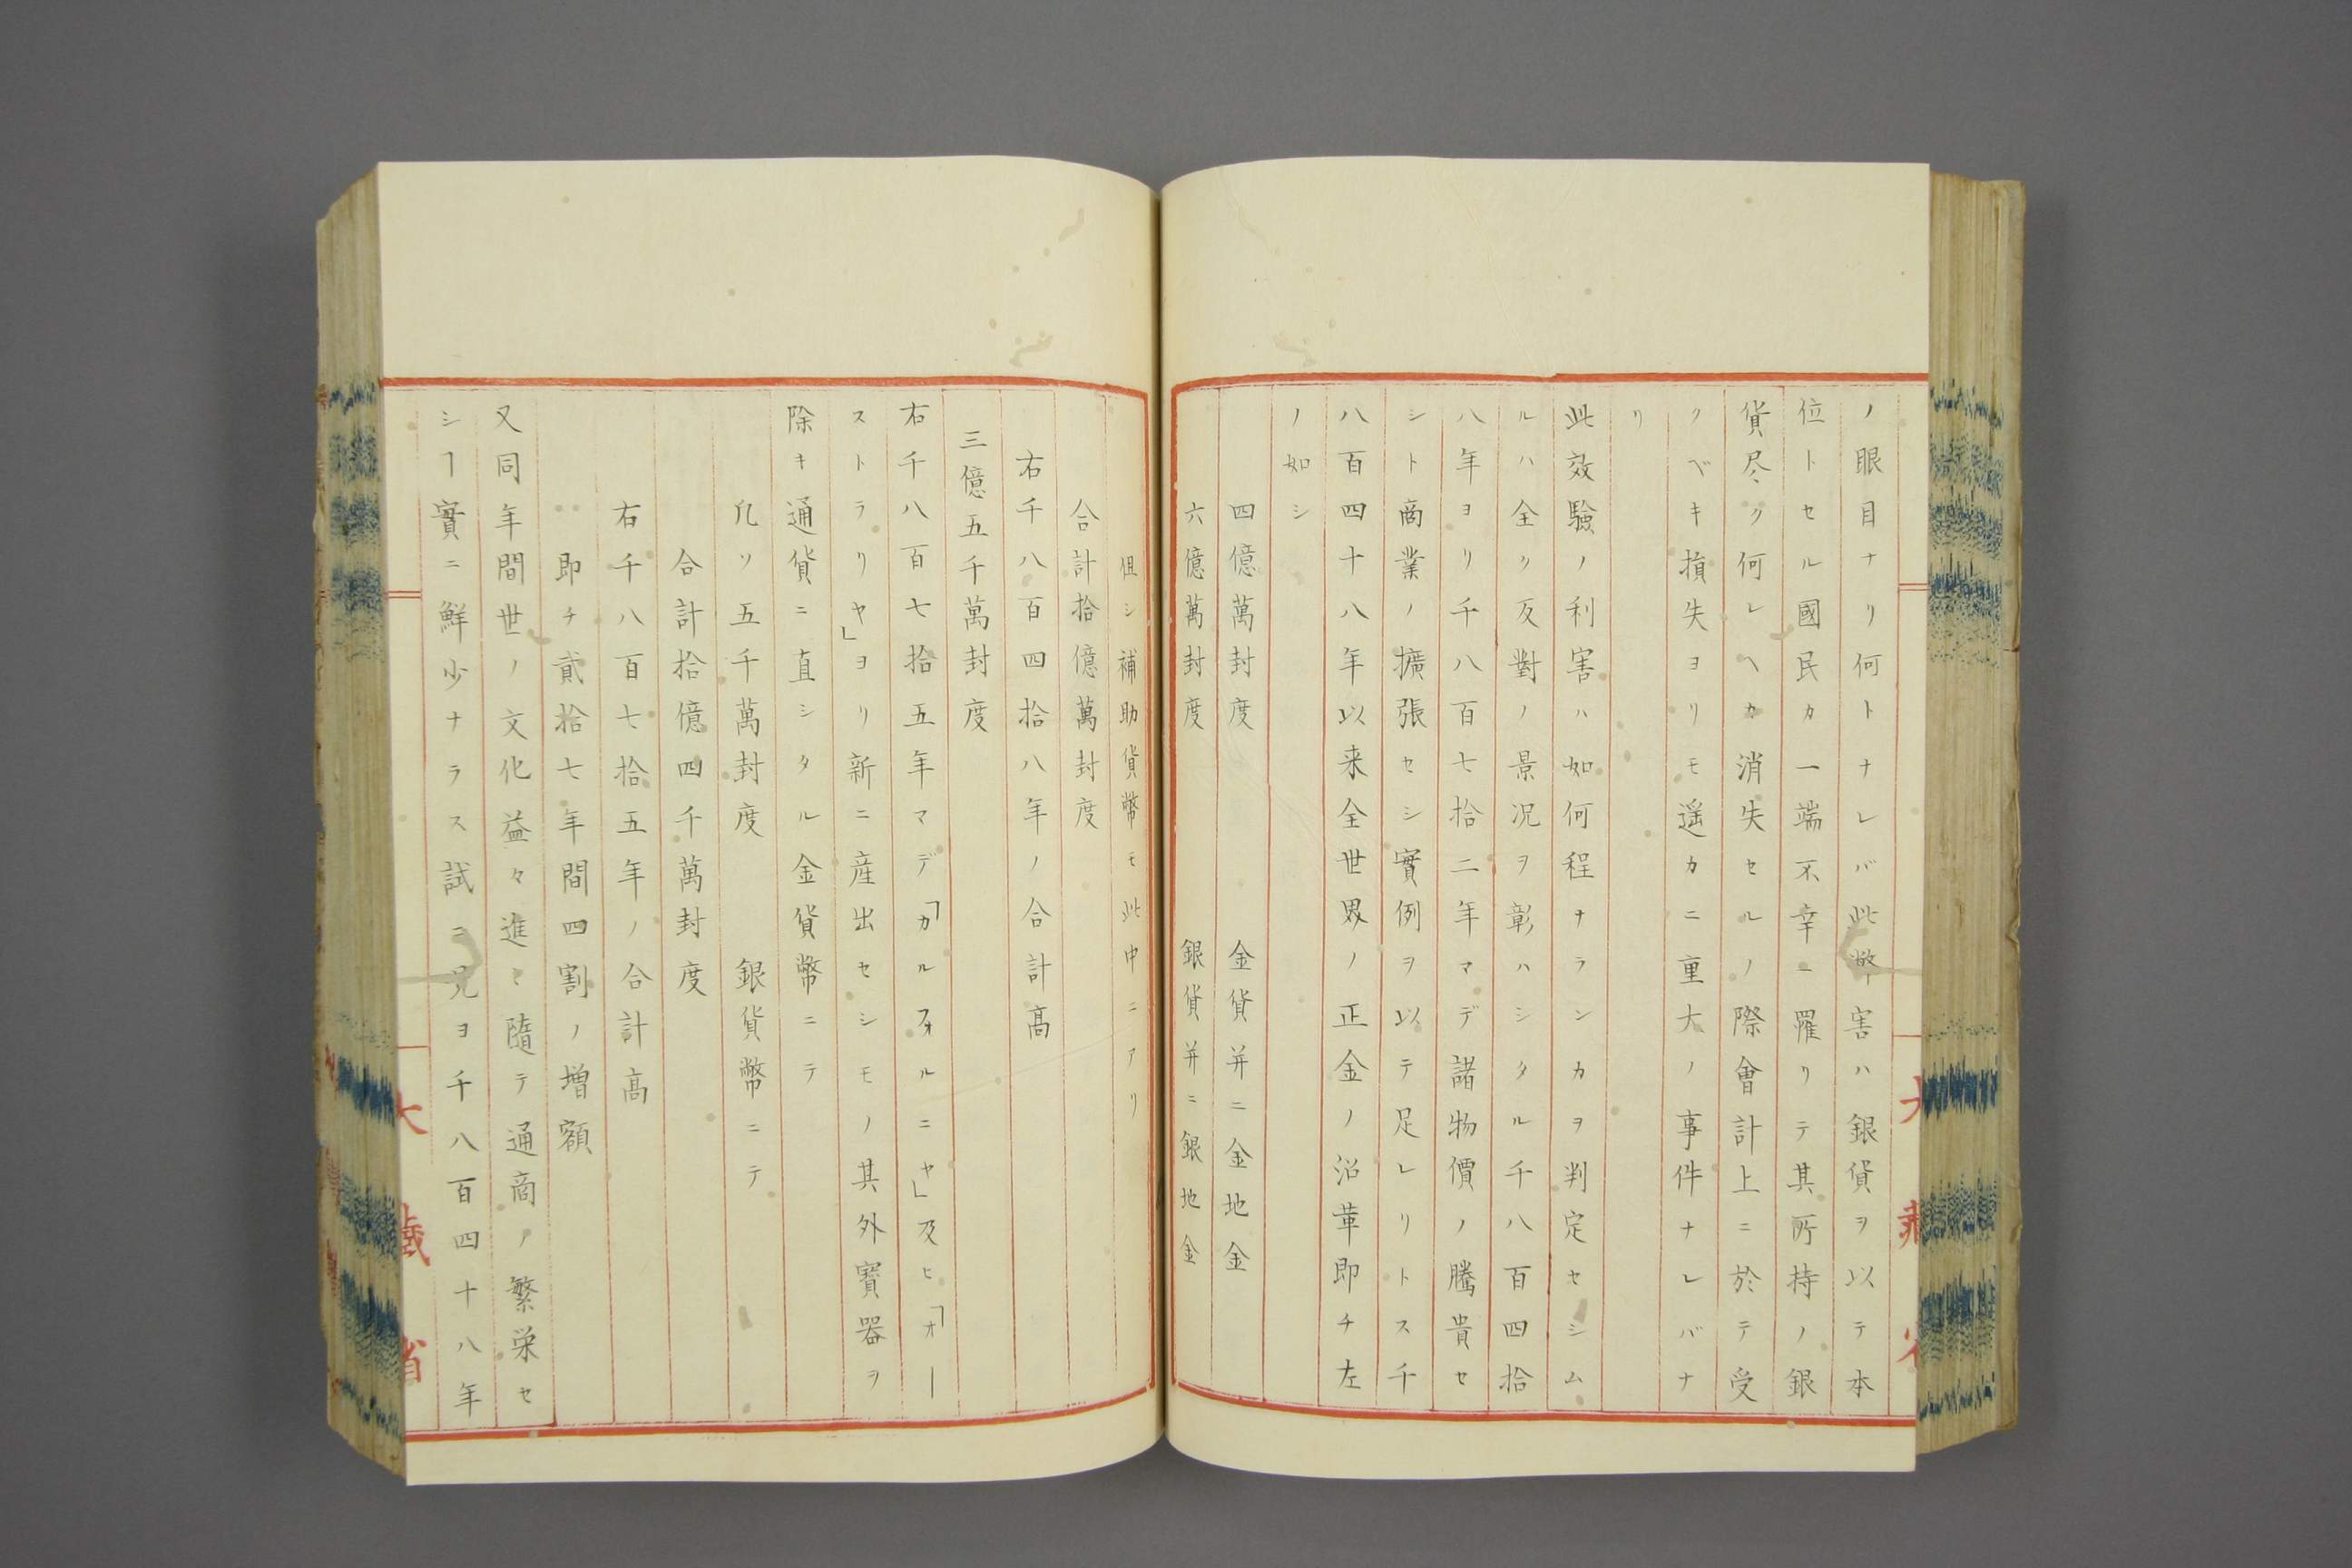 ノ眼目ナリ何トナレバ此弊害ハ銀貨ヲ以テ本
位トセル國民カ一端不幸ニ罹リテ其所持ノ銀
貨尽ク何レヘカ消失セルノ際會計上ニ於テ受
クベキ損失ヨリモ遥カニ重大ノ事件ナレバナ
リ
此效驗ノ利害ハ如何程ナランカヲ判定セシム
ルハ全ク反對ノ景况ヲ彰ハシタル千八百四拾
八年ヨリ千八百七拾二年マデ諸物價ノ騰貴セ
シト商業ノ擴張セシ實例ヲ以テ足レリトス千
八百四十八年以来全世界ノ正金ノ沿革即チ左
ノ如シ
四億萬封度 金貨并ニ金地金
六億萬封度 銀貨并ニ銀地金
但シ補助貨幣モ此中ニアリ
合計拾億萬封度
右千八百四拾八年ノ合計高
三億五千萬封度
右千八百七拾五年マデ「カルフォルニヤ」及ヒ「オー
ストラリヤ」ヨリ新ニ産出セシモノ其外寳器ヲ
除キ通貨ニ直シタル金貨幣ニテ
凡ソ五千萬封度 銀貨幣ニテ
合計拾億四千萬封度
右千八百七拾五年ノ合計高
即チ貳拾七年間四割ノ増額
又同年間世ノ文化益々進ミ隨テ通商ノ繁栄セ
シヿ實ニ鮮少ナラス試ニ見ヨ千八百四十八年
大藏省